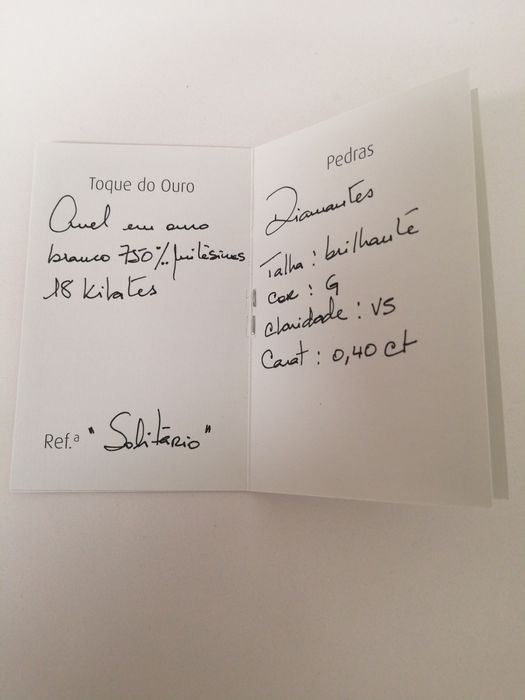 Toque do Ouro
Anel em ouro
branco 750‰ milésimas
18 Kilates
Ref.ª "Solitário"
Pedras
Diamantes
Talha : brilhante
cor : G
claridade : VS
Carat : 0,40 ct